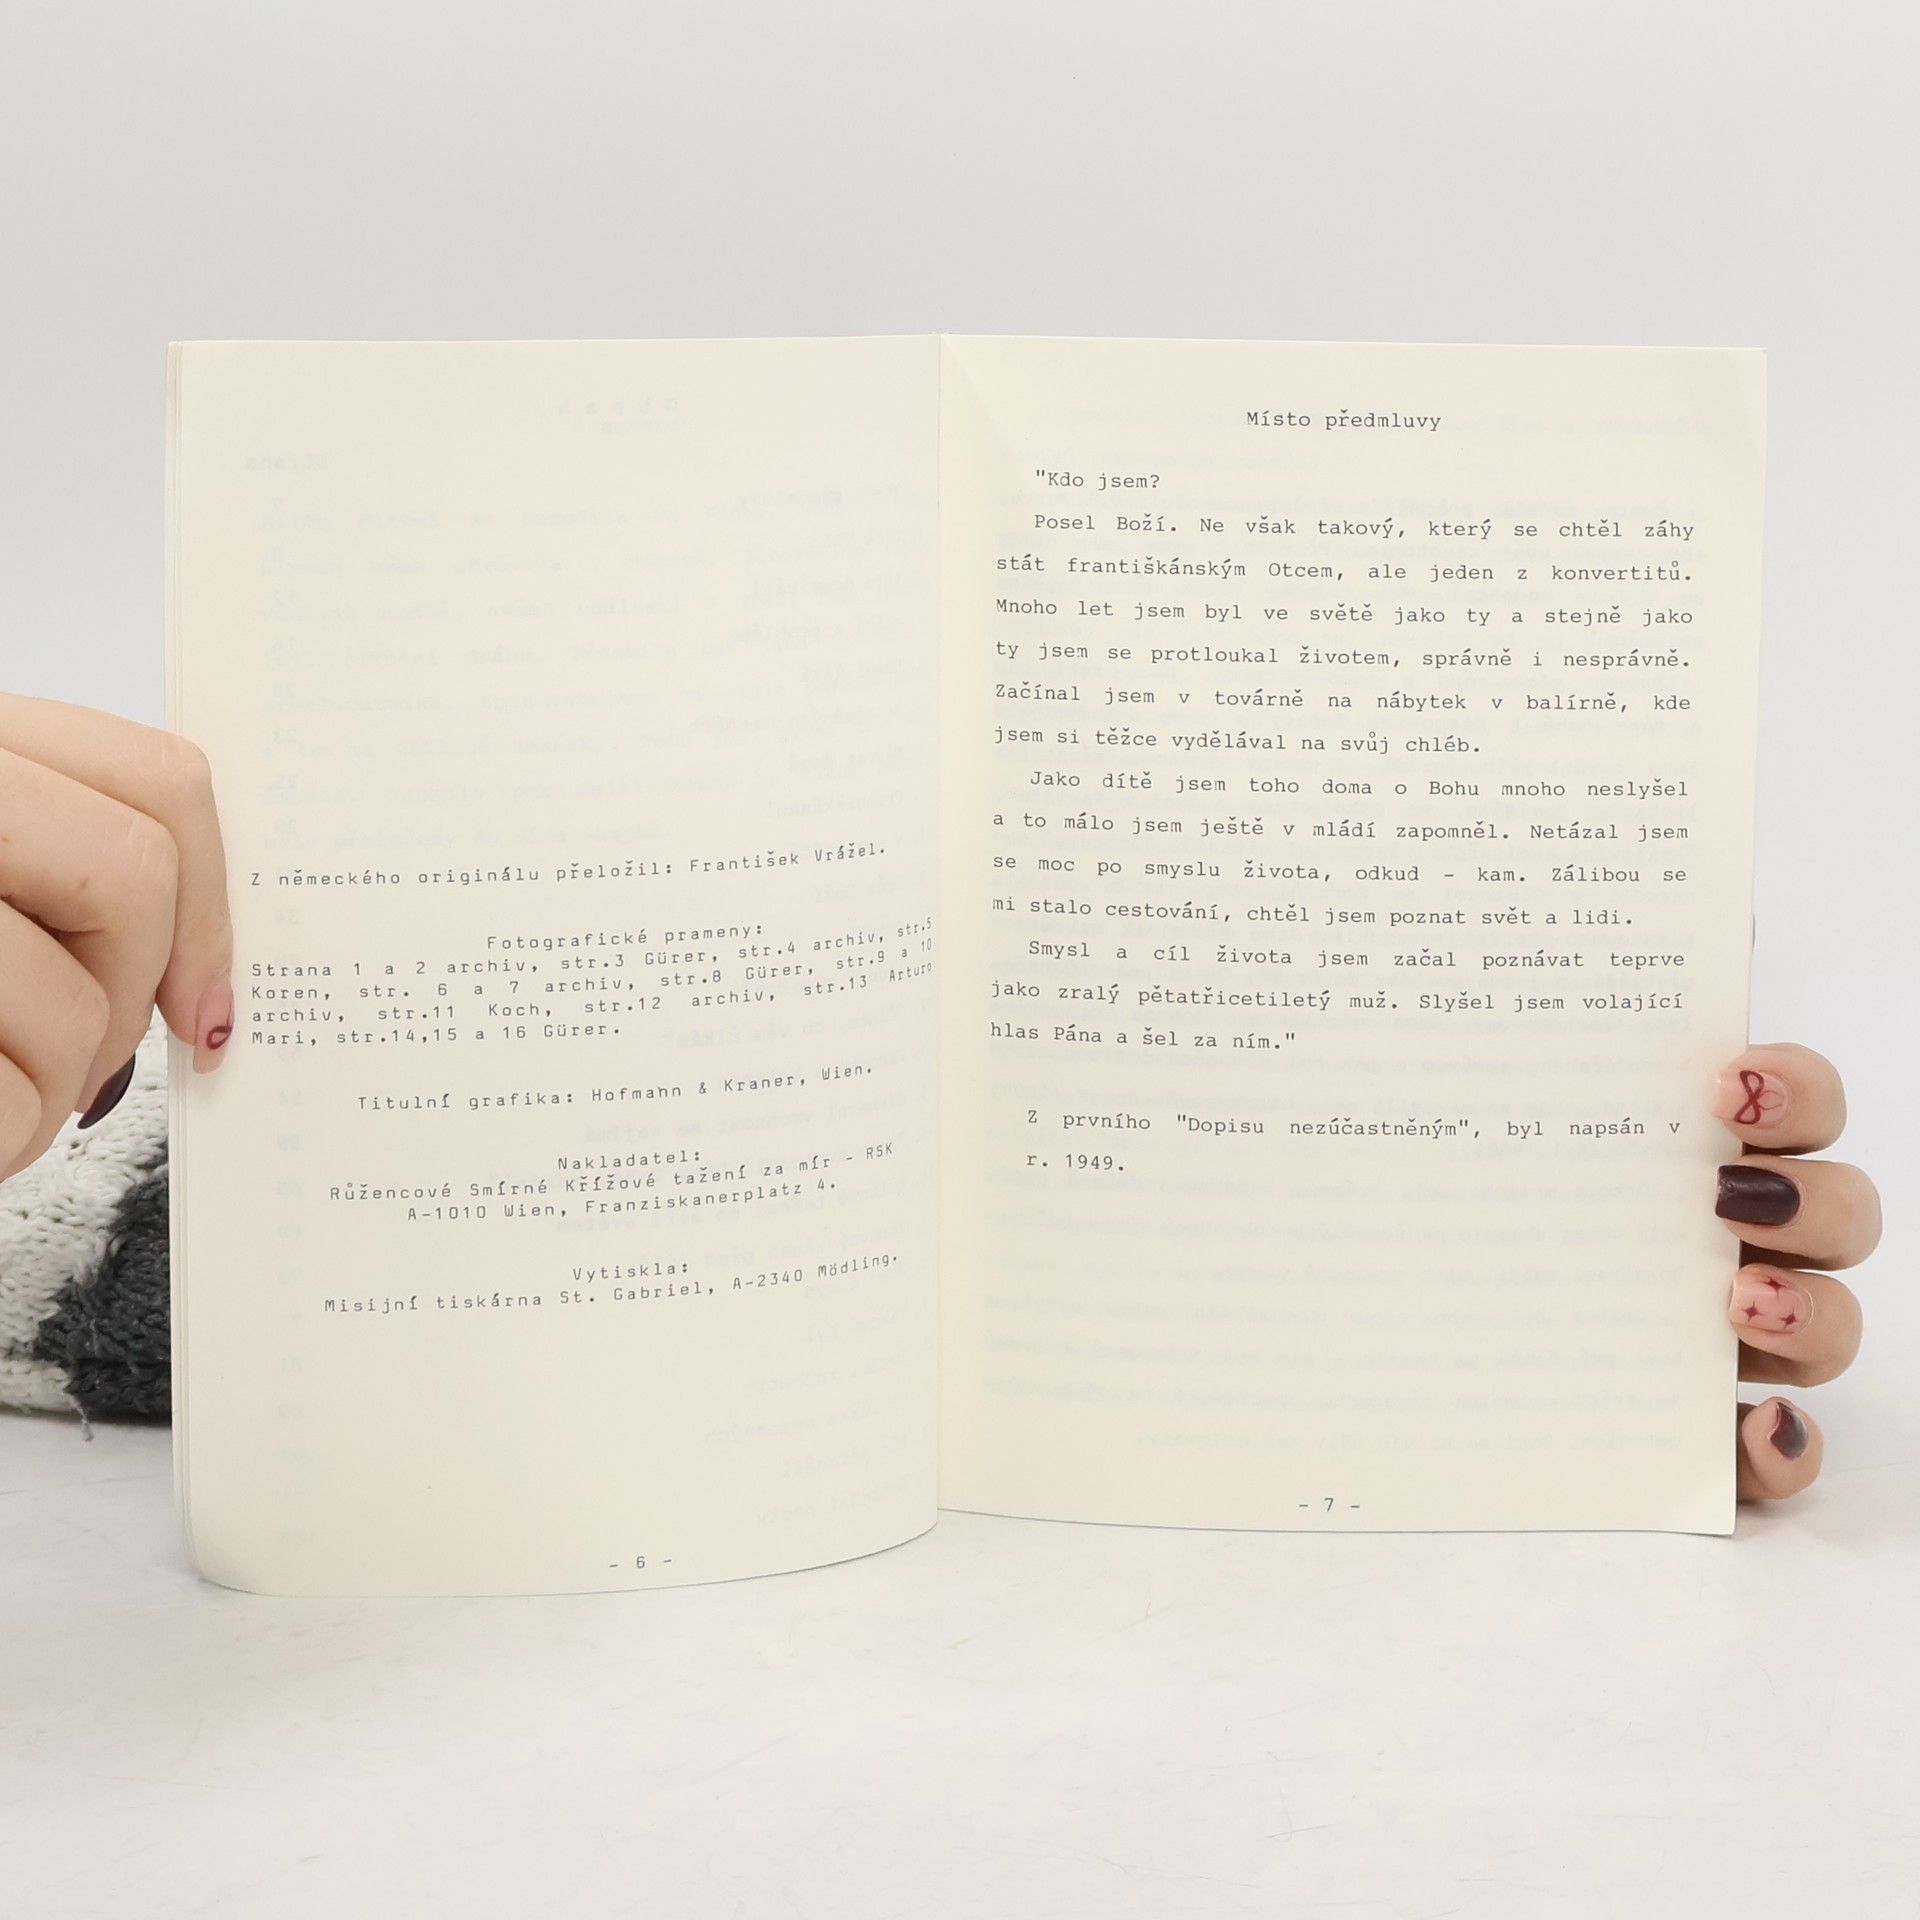 Z německého originálu přeložil: František Vrážel.
Fotografické prameny:
Strana 1 a 2 archiv, str.3 Gürer, str.4 archiv, str.5
Koren, str. 6 a 7 archiv, str.8 Gürer, str.9 a 10
archiv, str.11 Koch, str.12 archiv, str.13 Arturo
Mari, str.14,15 a 16 Gürer.
Titulní grafika: Hofmann & Kraner, Wien.
Nakladatel:
Růžencové Smírné Křížové tažení za mír - RSK
A-1010 Wien, Franziskanerplatz 4.
Vytiskla:
Misijní tiskárna St. Gabriel, A-2340 Mödling.
- 6 -
Místo předmluvy
"Kdo jsem?
Posel Boží. Ne však takový, který se chtěl záhy
stát františkánským Otcem, ale jeden z konvertitů.
Mnoho let jsem byl ve světě jako ty a stejně jako
ty jsem se protloukal životem, správně i nesprávně.
Začínal jsem v továrně na nábytek v balírně, kde
jsem si těžce vydělával na svůj chléb.
Jako dítě jsem toho doma o Bohu mnoho neslyšel
a to málo jsem ještě v mládí zapomněl. Netázal jsem
se moc po smyslu života, odkud - kam. Zálibou se
mi stalo cestování, chtěl jsem poznat svět a lidi.
Smysl a cíl života jsem začal poznávat teprve
jako zralý pětatřicetiletý muž. Slyšel jsem volající
hlas Pána a šel za ním."
Z prvního "Dopisu nezúčastněným", byl napsán v
r. 1949.
- 7 -